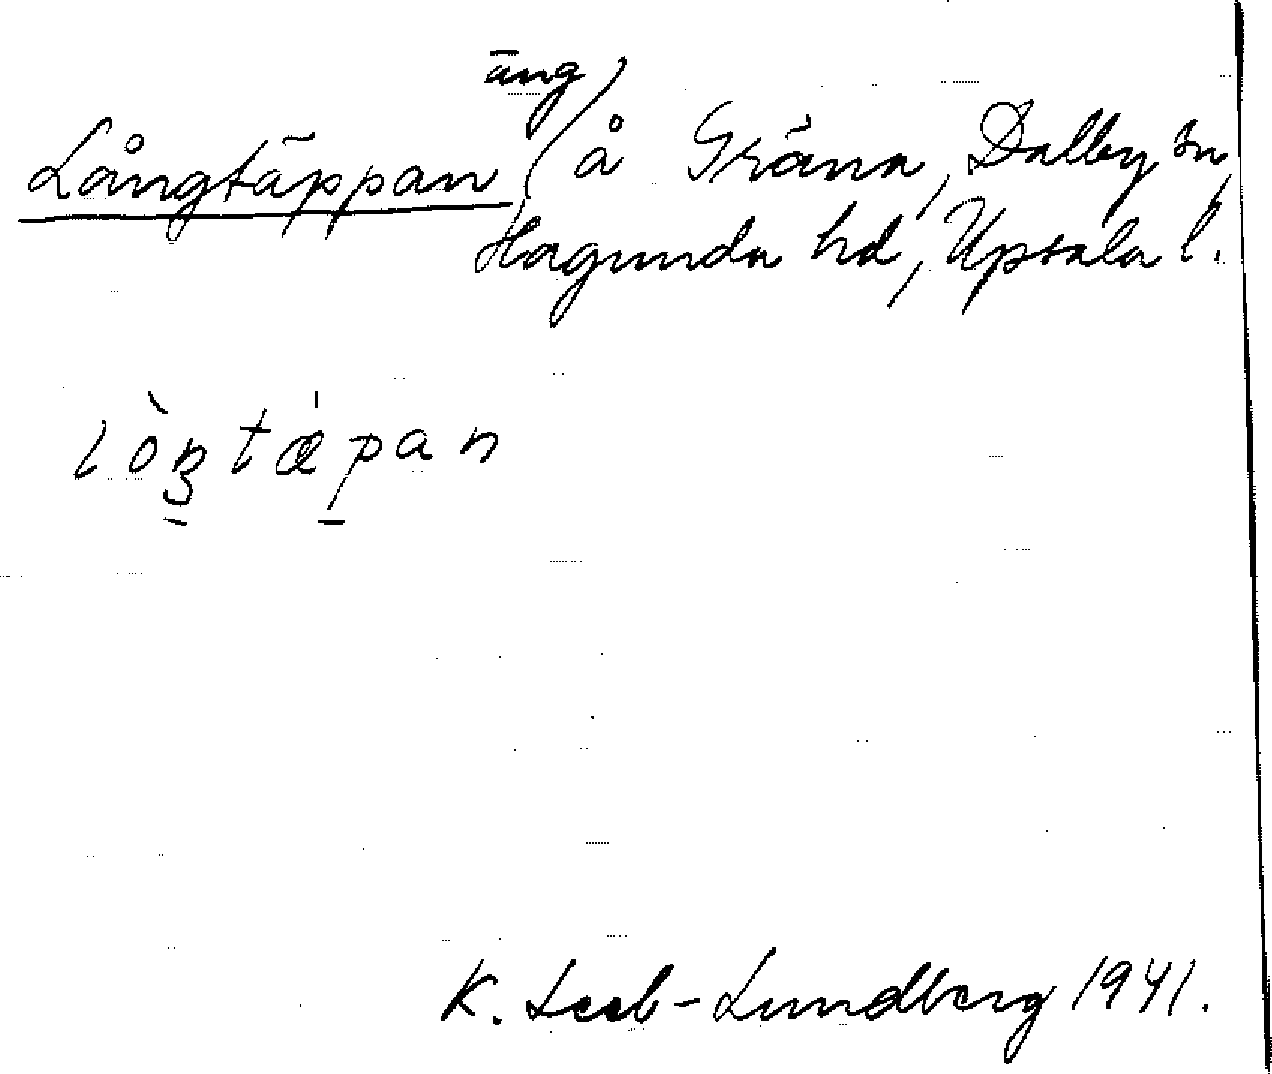 Långtäppan, äng å Gräna, Dalby sn,
Hagunda hd, Upsala l.
lòŋtǽpan
K. Leeb-Lundberg 1941.